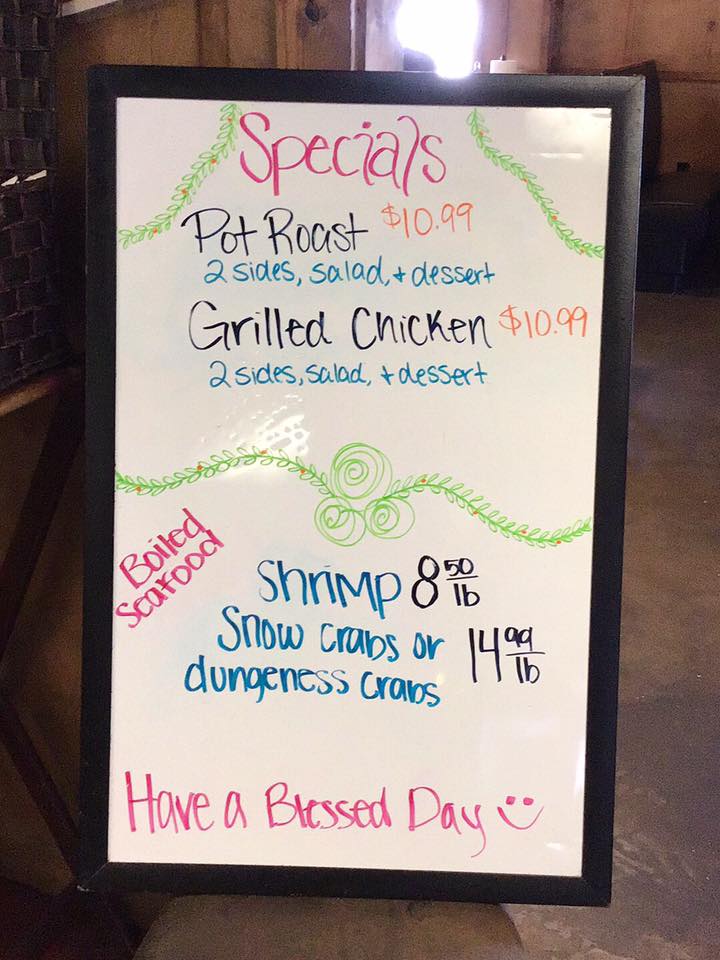 Specials
Pot Roast $10.99
2 sides, salad, + dessert
Grilled Chicken $10.99
2 sides, salad, + dessert
Boiled
Seafood
Shrimp 8 50/lb
Snow crabs or
dungeness crabs 14 99/lb
Have a Blessed Day